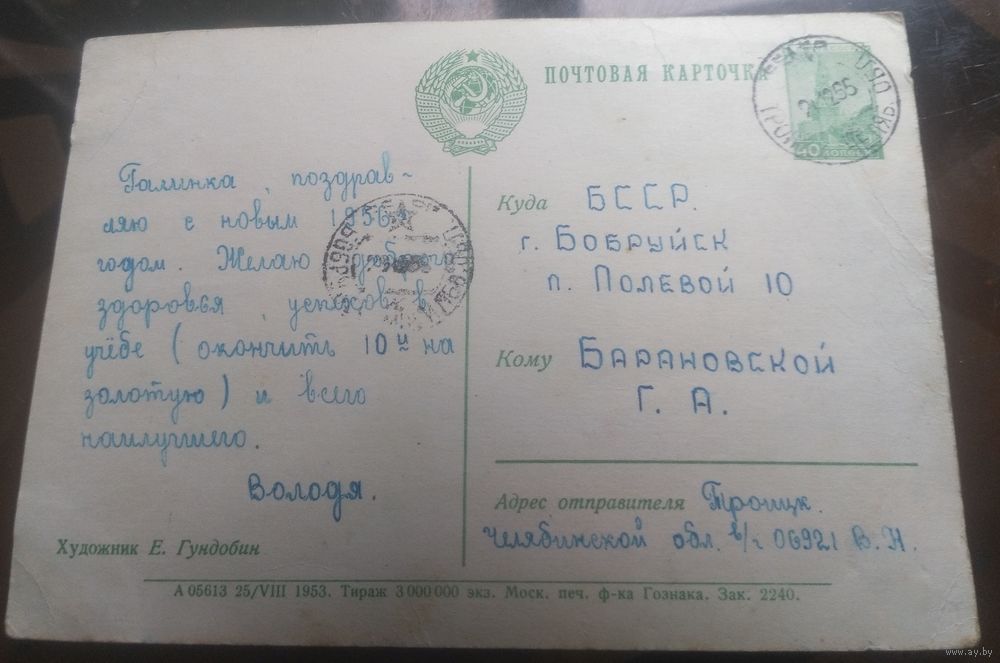 ПОЧТОВАЯ КАРТОЧКА
40
Галинка, поздрав-
ляю с новым 1956
годом. Желаю доброго
здоровья, успехов в
учёбе (окончить 10й на
золотую) и всего
наилучшего.
Володя.
Куда БССР.
г. БОБРУЙСК
п. ПОЛЕВОЙ 10
Кому БАРАНОВСКОЙ
Г. А.
Адрес отправителя Троицк.
Челябинской обл. в/ч 06921 В. Н.
Художник Е. Гундобин
А 05613 25/VIII 1953. Тираж 3 000 000 экз. Моск. печ. ф-ка Гознака. Зак. 2240.
www.ay.by